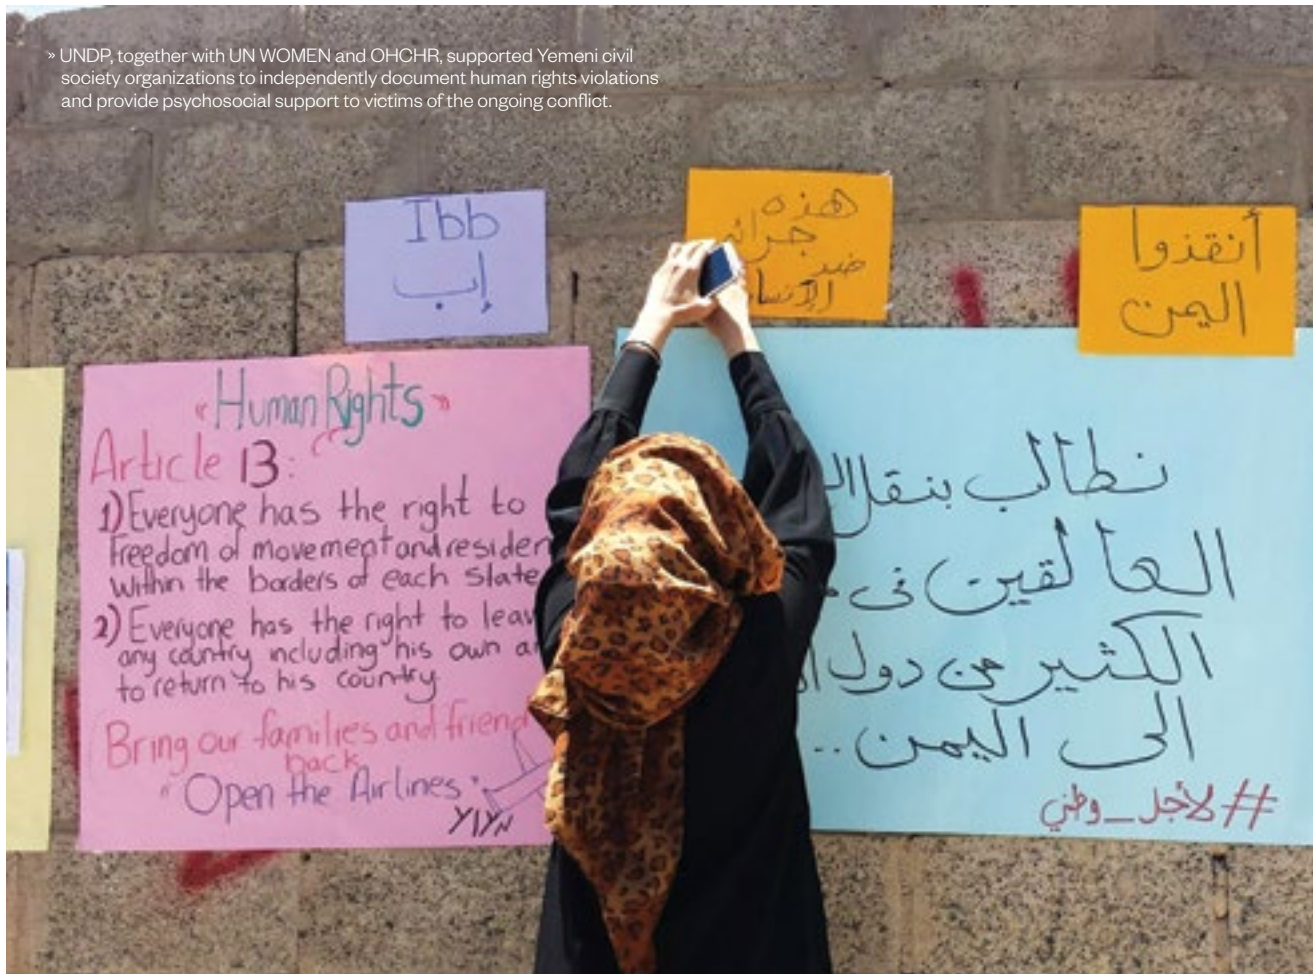 » UNDP, together with UN WOMEN and OHCHR, supported Yemeni civil
society organizations to independently document human rights violations
and provide psychosocial support to victims of the ongoing conflict.
Ibb
إب
هذه
جرائم
ضد
الإنسا
أنقذوا
اليمن
"Human Rights"
Article 13:
1) Everyone has the right to
freedom of movement and residen
within the borders of each State
2) Everyone has the right to leav
any country including his own a
to return to his country
Bring our families and friend
back
"Open the Airlines"
YIYN
نطالب بنقل
العالقين في
الكثير من دول
الى اليمن..
#لأجل_وطني